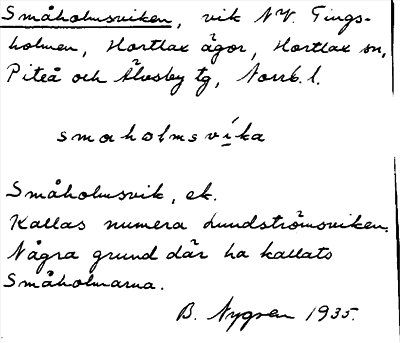 Småholmsviken, vik NV. Tings-
holmen, Hortlax ägor, Hortlax sn,
Piteå och Älvsby tg, Norrb. l.
smɑholmsvíka
Småholmsvik, ek.
Kallas numera Lundströmsviken.
Några grund där ha kallats
Småholmarna.
B. Nygren 1935.